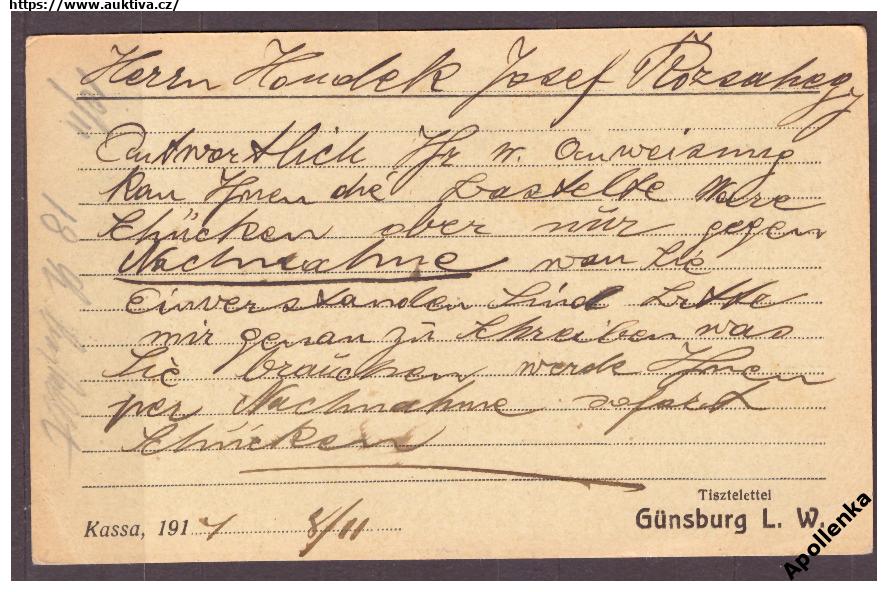 https://www.auktiva.cz/
Herrn Houdek Josef Rózsahegy
Antwortlich Ihr w. Anweisung
kan Ihnen die bastelte Ware
schücken aber nür gegen
Nachnahme wan Sie
Einverstanden Sind Bitte
mir genau zu schreiben was
Sie brauchen werde Ihnen
per Nachnahme sofort
schücken
Kassa, 191 8/11
Tisztelettel
Günsburg L. W.
Apollenka